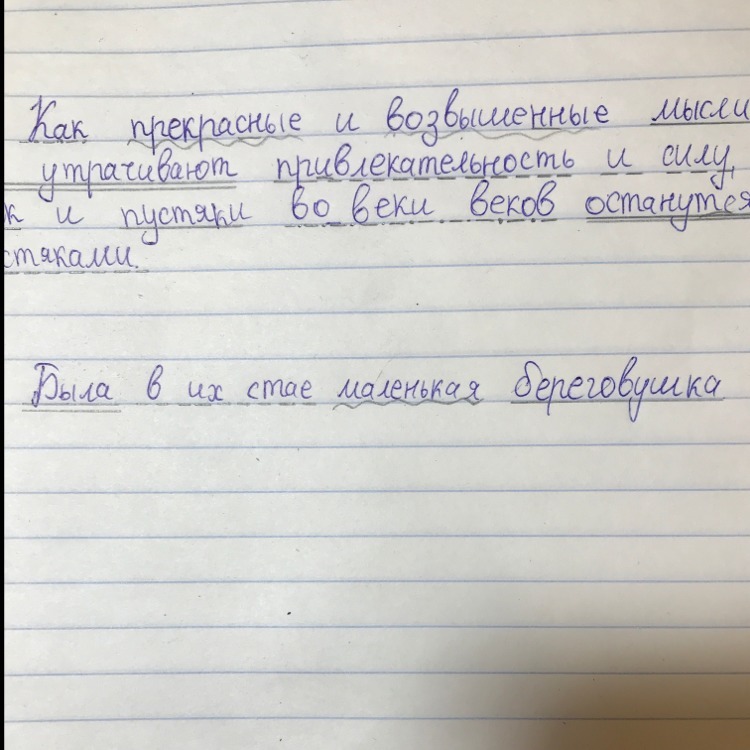 Как прекрасные и возвышенные мысли
утрачивают привлекательность и силу,
к и пустяки во веки веков останутся
стяками.
Была в их стае маленькая береговушка